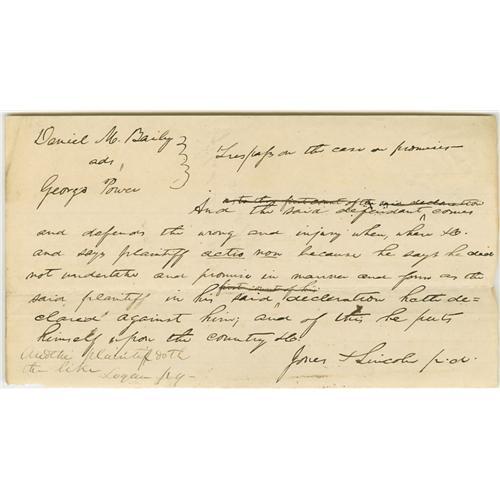 Daniel M. Baily
ads,
George Power
Trespass on the case on promises
as to the first count of the said declaration
And the said defendant comes
and defends the wrong and injury when, where &c.
and says plaintiff actio non because he says he did
not undertake and promise in manner and form as the
first count of his
said plaintiff in his said declaration hath de-
clared against him; and of this he puts
himself upon the country &c.
Jones & Lincoln p.d.
And the plaintiff doth
the like
Logan p q